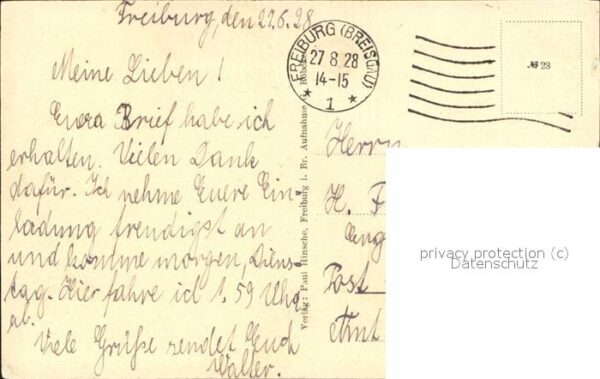 Freiburg, den 27.6.28
Meine Lieben!
Euern Brief habe ich
erhalten. Vielen Dank
dafür. Ich nehme Euere Ein-
ladung freudigst an
und komme morgen, Diens-
tag. Hier fahre ich 1.59 Uhr
ab.
Viele Grüße sendet Euch
Walter.
Verlag: Paul Hinsche, Freiburg i. Br. Aufnahme
FREIBURG (BREISGAU)
27 8 28
14-15
* 1 *
№ 23
Herrn
H. F
Post
Amt
privacy protection (c)
Datenschutz